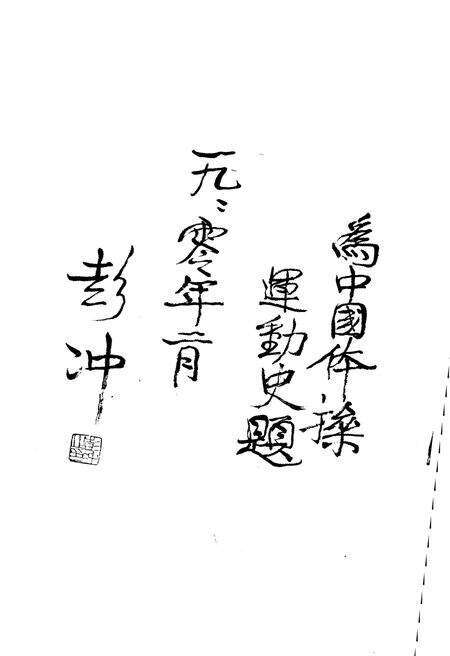 為中國体操
運動史題
一九〻零年二月
彭冲